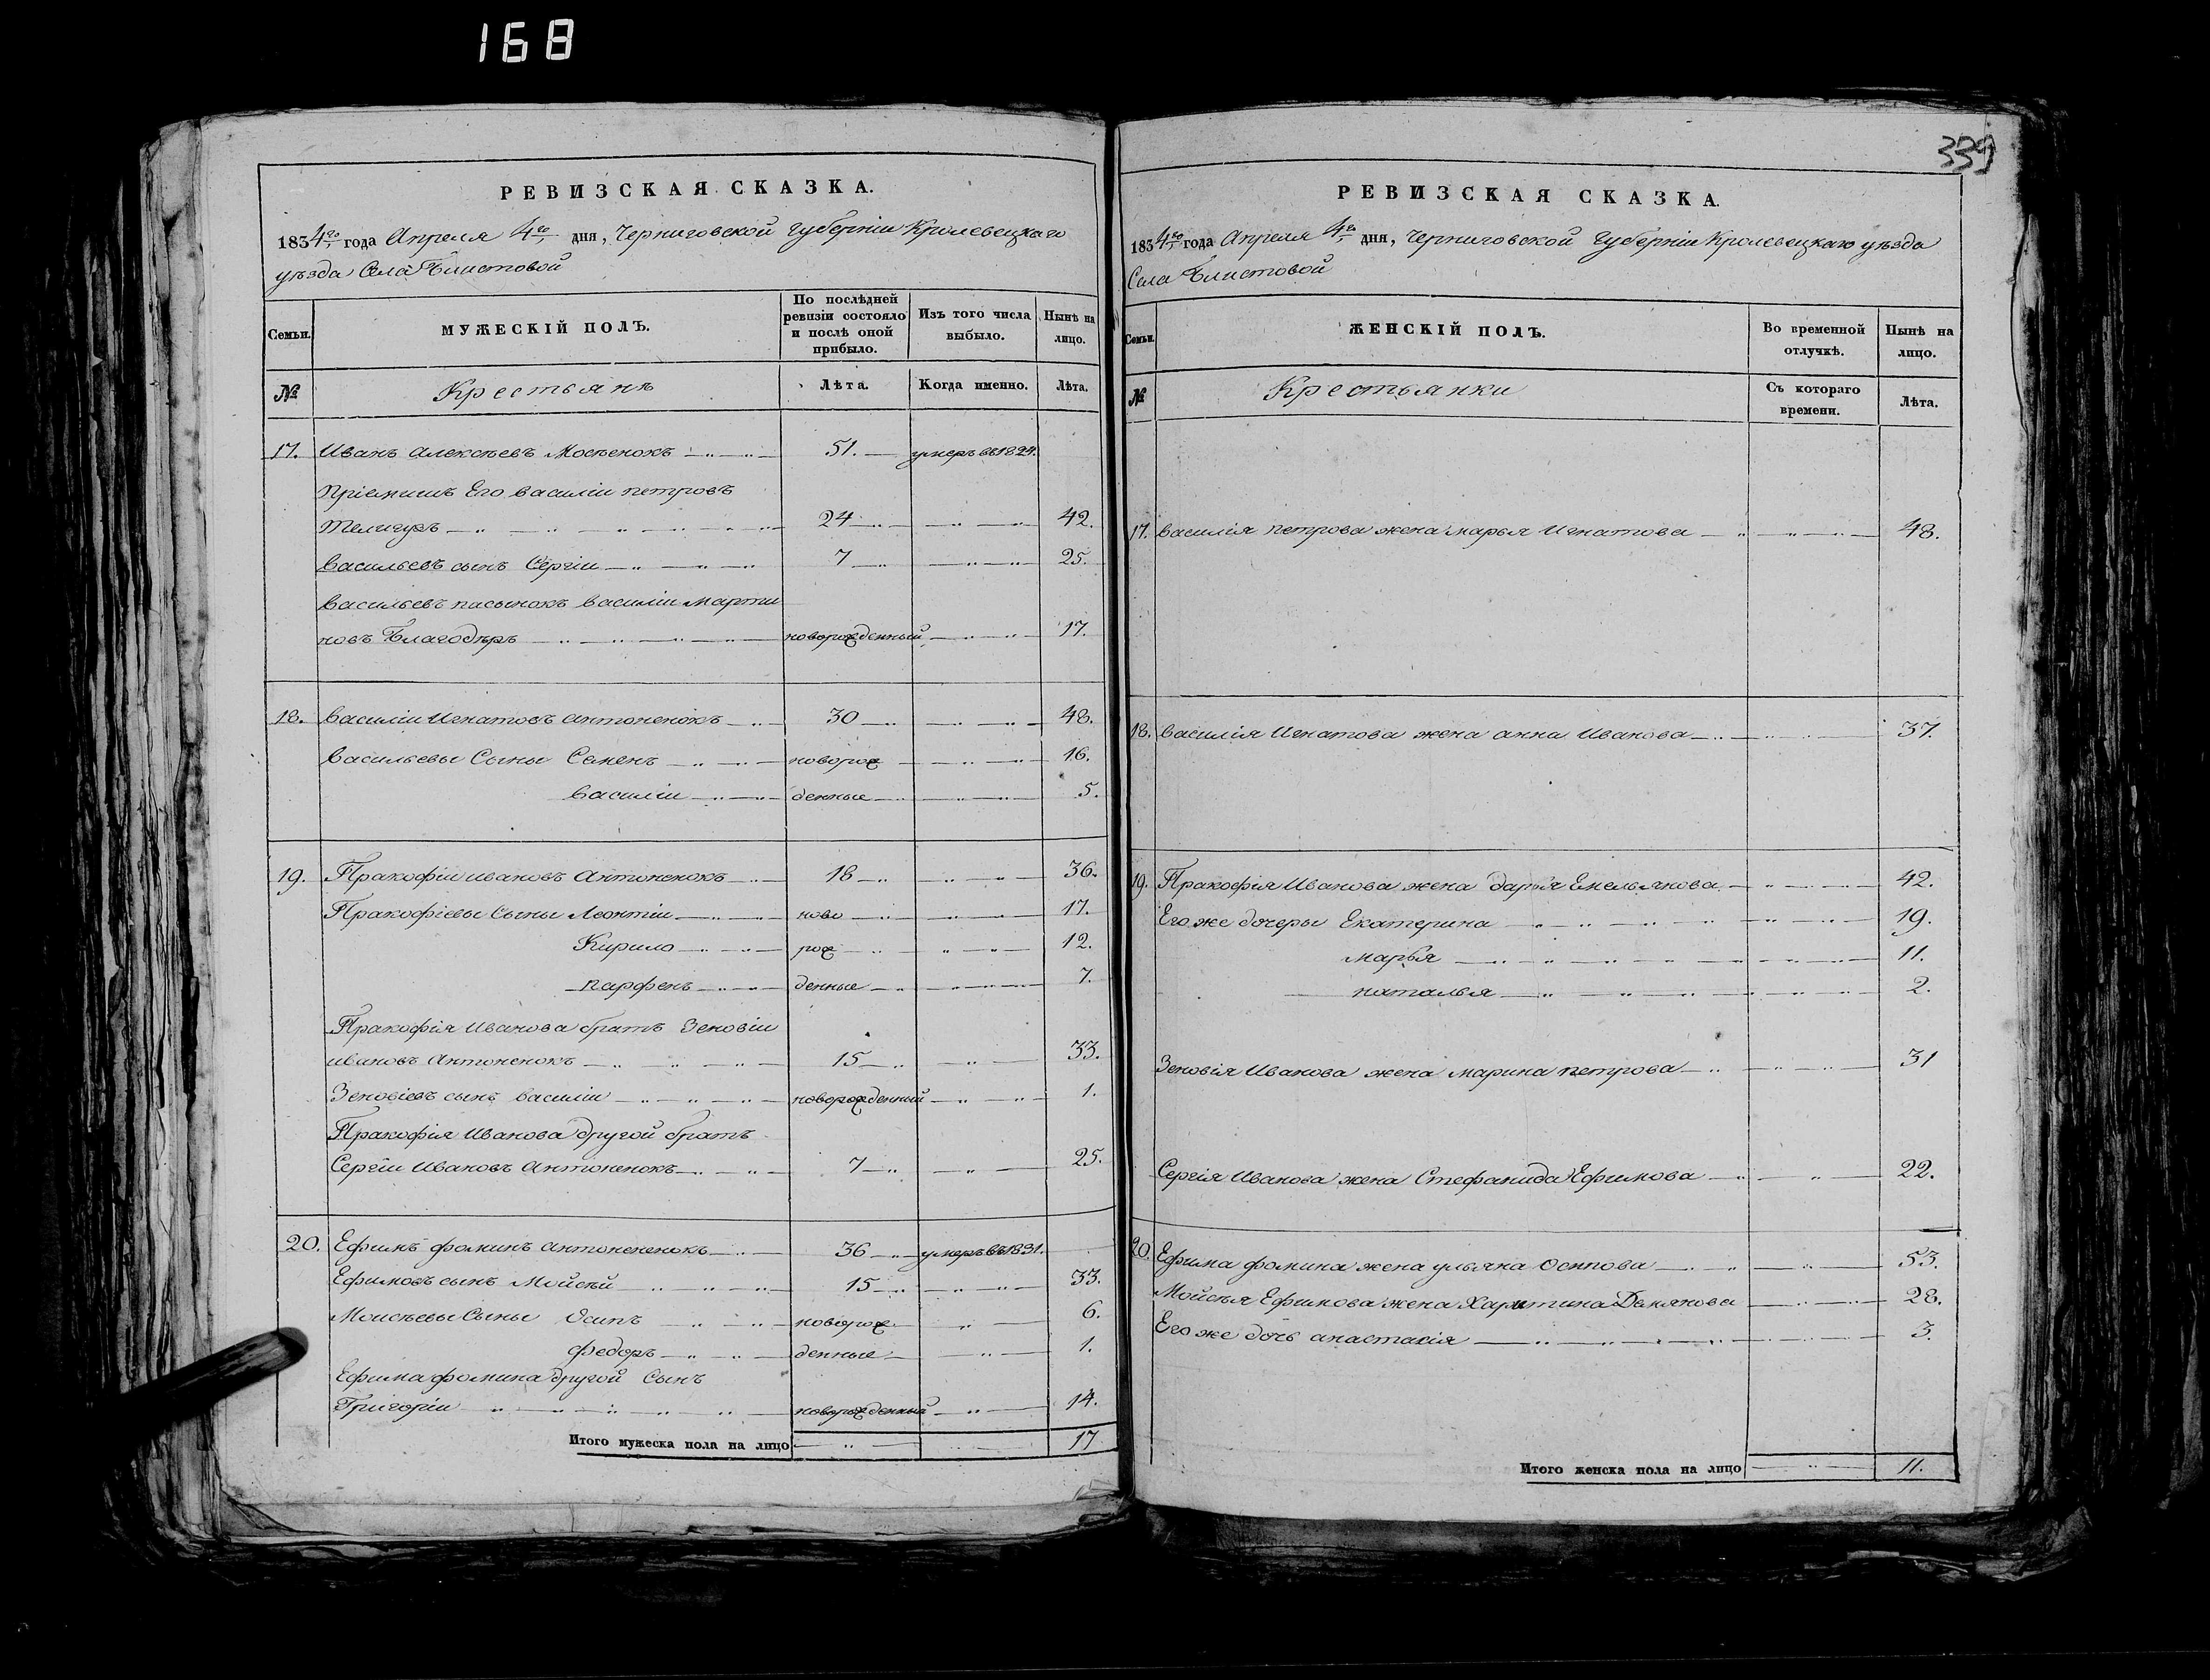 168
РЕВИЗСКАЯ СКАЗКА.
1834го года Апреля 4го дня, Черниговской Губернiи Кролевецкаго
уѣзда Села Блистовой
Семьи.
МУЖЕСКIЙ ПОЛЪ.
По послѣдней ревизiи состояло и послѣ оной прибыло.
Изъ того числа выбыло.
Нынѣ на лицо.
№
Крестьянѣ
Лѣта.
Когда именно.
Лѣта.
17. Иванъ Алексѣевъ Мосѣенокъ 51. умеръ въ 1824.
Прiемишъ Его василiи петровъ
Телигузъ 24 42.
Васильевъ сынъ Сергiи 7 25.
Васильевъ пасынокъ василiи марти
новъ Благодѣръ новорожденный 17.
18. Василiи Игнатовъ антоненокъ 30 48.
Васильевы Сыны Семенъ новорож 16.
Василiи денные 5.
19. Пракофiи ивановъ Антоненокъ 18 36.
Пракофiевы Сыны Леонтiи ново 17.
Кирило рож 12.
парфенъ денные 7.
Пракофiя Иванова братъ Зеновiи
ивановъ Антоненокъ 15 33.
Зеновiевъ сынъ василiи новорожденный 1.
Пракофiя Иванова другой братъ
Сергiи Ивановъ Антоненокъ 7 25.
20. Ефимъ фоминъ антонененокъ 36 умеръ въ 1831.
Ефимовъ сынъ Мойсѣй 15 33.
Моисѣевы Сыны Осипъ новорож 6.
федоръ денные 1.
Ефима фомина другой Сынъ
Григорiи новорожденный 14.
Итого мужеска пола на лицо 17
339
РЕВИЗСКАЯ СКАЗКА.
1834го года Апреля 4го дня, Черниговской Губернiи Кролевецкаго уѣзда
Села Блистовой
Семьи.
ЖЕНСКIЙ ПОЛЪ.
Во временной отлучкѣ.
Нынѣ на лицо.
№
Крестьянки
Съ котораго времени.
Лѣта.
17. василiя петрова жена марья Игнатова 48.
18. василiя Игнатова жена анна Иванова 37.
19. Пракофiя Иванова жена дарья Емельянова 42.
Его же дочеры Екатерина 19.
марья 11.
наталья 2.
Зеновiя Иванова жена марина петрова 31
Сергiя Иванова жена Стефанида Ефимова 22.
20. Ефима фомина жена ульяна Осипова 53.
Мойсѣя Ефимова жена Харитина Демянова 28.
Его же дочь анастасiя 3.
Итого женска пола на лицо 11.